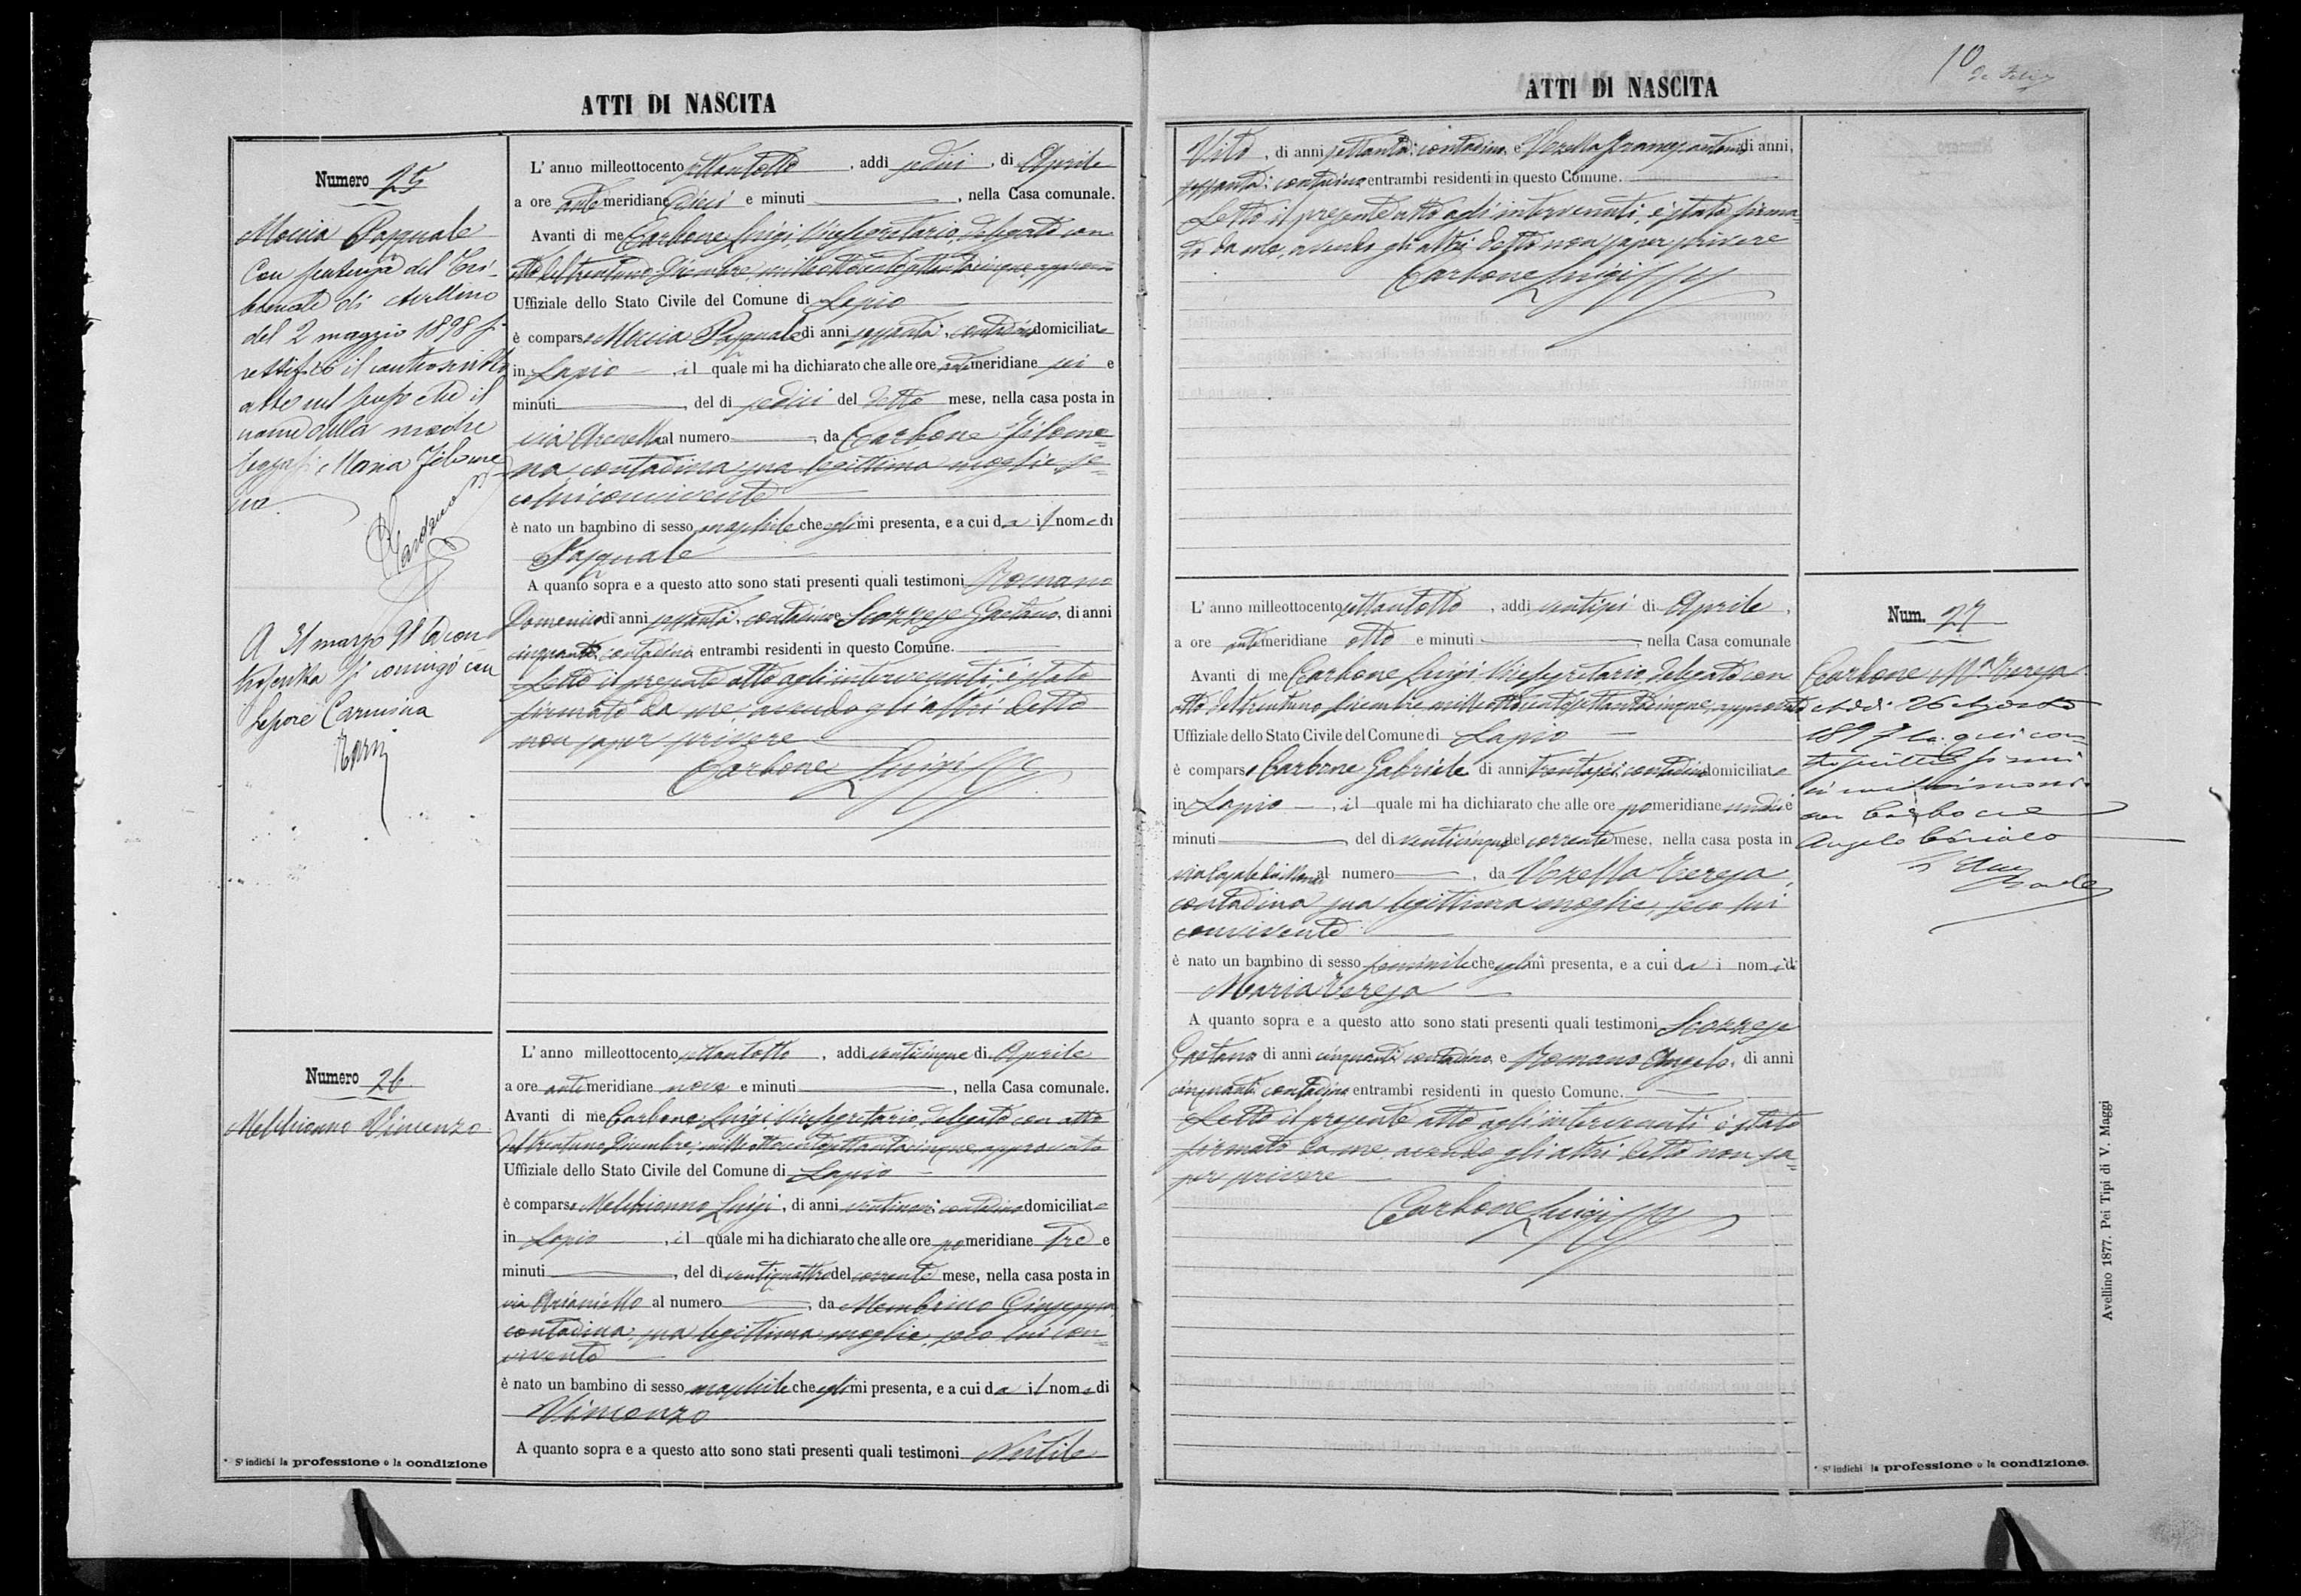 ATTI DI NASCITA
Numero 25
Moccia Pasquale
Con sentenza del Tri-
bunale di Avellino
del 2 maggio 1898 si
rettificò il controscritto
atto nel senso che il
nome della madre
leggasi, Maria Filome
na.
A 31 marzo 98
si coniugò con
Lepore Carmina
L'anno milleottocento settantotto, addi sedici, di Aprile
a ore antimeridiane dieci e minuti, nella Casa comunale.
Avanti di me Carbone Luigi, Vicesegretario, delegato con
atto del trentuno Dicembre, milleottocentosettantacinque, approvato
Uffiziale dello Stato Civile del Comune di Lapio
è comparso Moccia Pasquale di anni sessanta, contadino domiciliato
in Lapio, il quale mi ha dichiarato che alle ore antimeridiane sei e
minuti, del dì sedici del detto mese, nella casa posta in
via al numero, da Carbone Filome=
na, contadina, sua legittima moglie, se=
co lui convivente
è nato un bambino di sesso maschile che egli mi presenta, e a cui da il nome di
Pasquale
A quanto sopra e a questo atto sono stati presenti quali testimoni Romano
Domenico di anni sessanta, contadino e Scozzese Gaetano, di anni
cinquanta, contadino entrambi residenti in questo Comune.
Letto il presente atto agli intervenuti, è stato
firmato da me, avendo gli altri detto
non saper scrivere
Carbone Luigi
Numero 26
Melchionno Vincenzo
L'anno milleottocento settantotto, addi venticinque di Aprile
a ore antimeridiane nove e minuti, nella Casa comunale.
Avanti di me Carbone Luigi, Vicesegretario, delegato con atto
del trentuno Dicembre, milleottocentosettantacinque, approvato
Uffiziale dello Stato Civile del Comune di Lapio
è comparso Melchionno Luigi, di anni ventinove, contadino domiciliato
in Lapio, il quale mi ha dichiarato che alle ore pomeridiane tre e
minuti, del dì ventiquattro del corrente mese, nella casa posta in
via Arianiello al numero, da Membrino Giuseppa,
contadina, sua legittima moglie, seco lui con=
vivente
è nato un bambino di sesso maschile che egli mi presenta, e a cui da il nome di
Vincenzo
A quanto sopra e a questo atto sono stati presenti quali testimoni
* S'indichi la professione o la condizione
10
ATTI DI NASCITA
Vito, di anni settanta, contadino, e Verella Francescantonio di anni,
sessanta, contadino entrambi residenti in questo Comune.
Letto il presente atto agli intervenuti, è stato firma=
to da me, avendo gli altri detto non saper scrivere
Carbone Luigi
L'anno milleottocento settantotto, addi ventisei di Aprile,
a ore antimeridiane otto e minuti, nella Casa comunale
Avanti di me Carbone Luigi, Vicesegretario, delegato con
atto del trentuno Dicembre, milleottocentosettantacinque, approvato
Uffiziale dello Stato Civile del Comune di Lapio
è comparso Carbone Gabriele di anni trentasei, contadino domiciliato
in Lapio, il quale mi ha dichiarato che alle ore pomeridiane undici e
minuti del dì venticinque del corrente mese, nella casa posta in
via al numero, da Verella Teresa,
contadina, sua legittima moglie, seco lui
convivente
è nato un bambino di sesso feminile che egli mi presenta, e a cui da i nomi di
Maria Teresa
A quanto sopra e a questo atto sono stati presenti quali testimoni Scozzese
Gaetano di anni cinquanta, contadino e Romano Angelo, di anni
cinquanta, contadino entrambi residenti in questo Comune.
Letto il presente atto agli intervenuti, è stato
firmato da me, avendo gli altri detto non sa=
per scrivere
Carbone Luigi
Num. 27
Carbone Mª Teresa
Addì 26 Agosto
1897 la qui con
troscritta si unì
in matrimonio
con Carbone
Angelo Ciriaco
* S'indichi la professione o la condizione.
Avellino 1877. Pei Tipi di V. Maggi